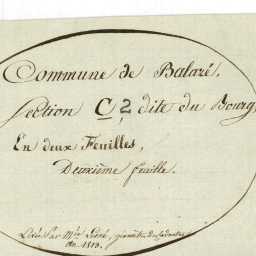 Commune de Balazé,
Section C, 2 dite du Bourg,
En deux Feuilles,
Deuxième feuille.
Levée Par Mr. géomètre du Cadastre